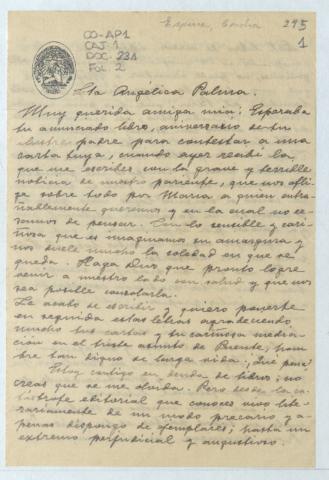 Espina, Concha
295
1
CO-AP1
CAJ. 1
DOC. 231
FOL. 2
Sta Angélica Palma.
Muy querida amiga mía: Esperaba
tu anunciado libro, aniversario de tu
ilustre padre para contestar a una
carta tuya, cuando ayer recibí la
que me escribes con la grave y terrible
noticia de nuestro pariente, que nos afli-
ge sobre todo por María a quien entra-
ñablemente queremos y en la cual no ce-
samos de pensar. Con lo sensible y cari-
ñosa que es imaginamos su amargura y
nos duele mucho la soledad en que se
queda. Haga Dios que pronto logre
venir a nuestro lado con salud y que nos
sea posible consolarla.
Le acabo de escribir y quiero ponerte
en seguida estas letras agradeciendo
mucho tus cartas y tu cariñosa media-
ción en el triste asunto de Puente, hom-
bre tan digno de larga vida. ¡Qué pena!
Estoy contigo en deuda de libros; no
creas que se me olvida. Pero desde la ca-
tástrofe editorial que conoces vivo lite-
rariamente de un modo precario y a-
penas dispongo de ejemplares; hasta un
extremo perjudicial y angustioso.